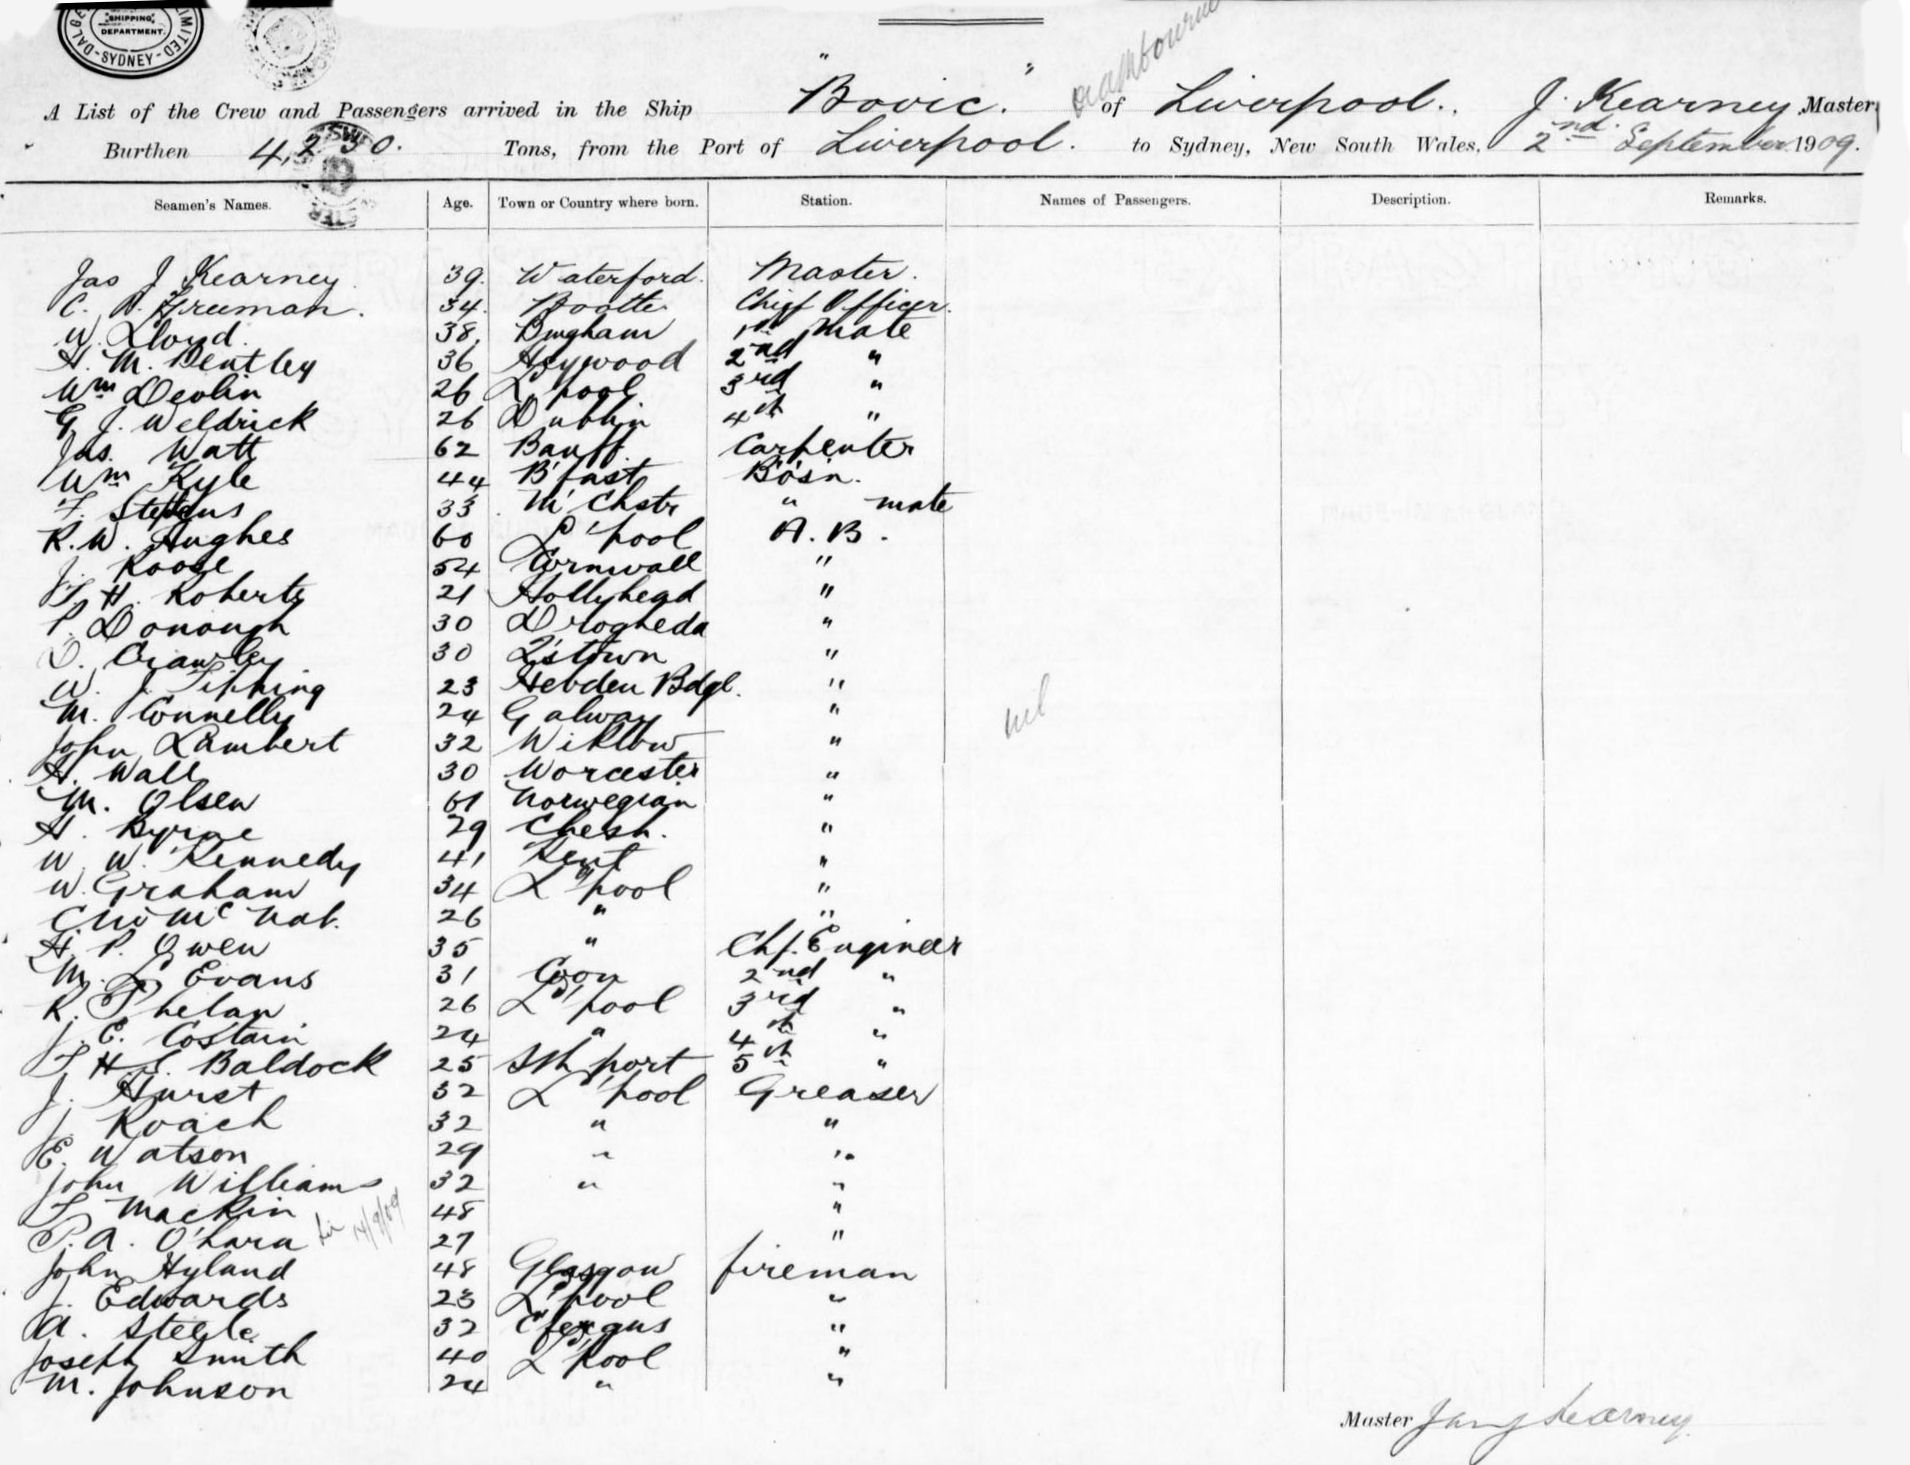 SHIPPING
DEPARTMENT.
LIMITED
SYDNEY
"Bovic." of Liverpool. J. Kearney Master,
A List of the Crew and Passengers arrived in the Ship
Burthen 4,230. Tons, from the Port of Liverpool. to Sydney, New South Wales, 2nd September 1909.
Seamen's Names. Age. Town or Country where born. Station. Names of Passengers. Description. Remarks.
Jas J Kearney 39. Waterford. Master.
C. Freeman. 34. Bootle Chief Officer.
W. Lloyd. 38. Bingham 1st Mate
H. M. Bentley 36 Heywood 2nd "
Wm Devlin 26 L'pool 3rd "
G. J. Weldrick 26 Dublin 4th "
Jas. Watt 62 Banff. Carpenter
Wm Kyle 44 B'fast Bosn.
F. Stephens 33 M'Chstr " mate
R. W. Hughes 60 L'pool A. B.
J. Roose 54 Cornwall "
T H. Roberts 21 Hollyhead "
P. Donough 30 Drogheda "
D. Crawley 30 Q'stown "
W. J. Tipping 23 Hebden Bdge. "
M. Connelly 24 Galway "
John Lambert 32 Wiklow "
H. Wall 30 Worcester "
M. Olsen 61 Norwegian "
H. Byrne 29 Chesh. "
W. W. Kennedy 41 Kent "
W. Graham 34 L'pool "
Mc Nab. 26 " "
H. P. Owen 35 " Chf. Engineer
M. L Evans 31 2nd "
R. Phelan 26 L'pool 3rd "
J. E. Costain 24 " 4th "
T H. S. Baldock 25 Sthport 5th "
J. Hurst 32 L'pool Greaser
J. Roach 32 " "
E. Watson 29 " "
John Williams 32 " "
T. Mackin 48 "
P. A. O'hara 14/9/09 27 "
John Hyland 48 Glasgow fireman
J. Edwards 23 L'pool "
A. Steele 32 C'fergus "
Joseph Smith 40 L'pool "
M. Johnson 24 " "
nil
Master Jas J Kearney